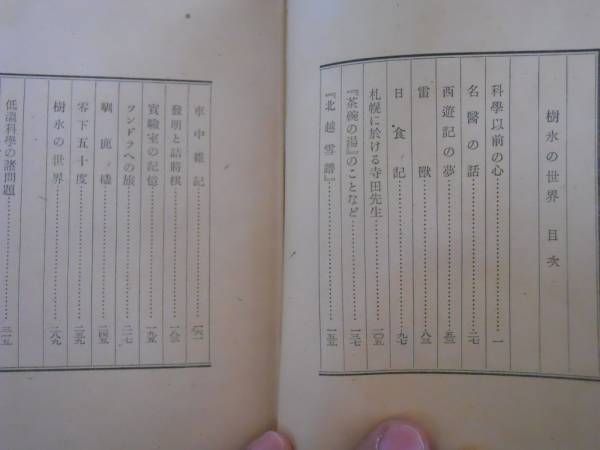 樹氷の世界 目次
科學以前の心 一
名醫の話 二七
西遊記の夢 五三
雷獸 八三
日食記 九七
札幌に於ける寺田先生 一〇五
『茶碗の湯』のことなど 一三七
『北越雪譜』 一五五
車中雜記 一六一
發明と詰將棋 一八三
實驗室の記憶 一九五
ツンドラへの旅 二一七
馴鹿橇 二四五
零下五十度 二五九
樹氷の世界 二八九
低温科學の諸問題 三一五